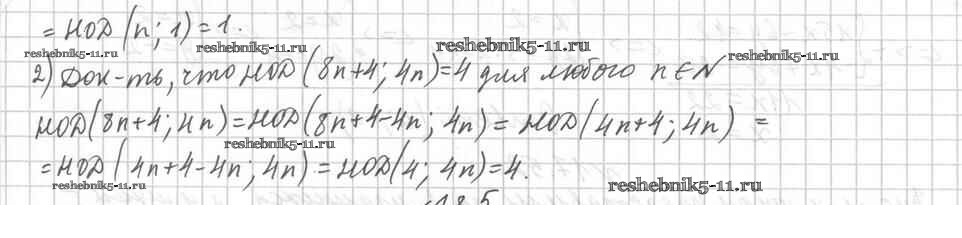 = НОД (n; 1) = 1.
reshebnik5-11.ru reshebnik5-11.ru reshebnik5-11.ru
2) Док-ть, что НОД (8n+4; 4n)=4 для любого n∈N
reshebnik5-11.ru reshebnik5-11.ru
НОД(8n+4; 4n) = НОД(8n+4-4n; 4n) = НОД(4n+4; 4n) =
reshebnik5-11.ru
= НОД (4n+4-4n; 4n) = НОД(4; 4n)=4.
reshebnik5-11.ru reshebnik5-11.ru